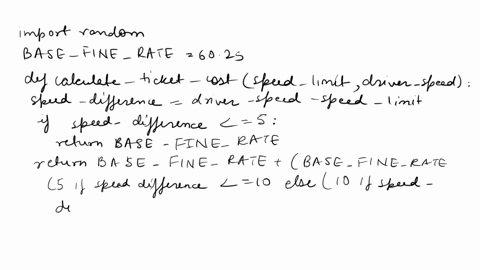 import random
BASE_FINE_RATE = 60.25
def calculate_ticket_cost (speed_limit, driver_speed):
speed_difference = driver_speed - speed_limit
if speed_difference <= 5:
return BASE_FINE_RATE
return BASE_FINE_RATE + (BASE_FINE_RATE
(5 if speed difference <= 10 else (10 if speed_
de